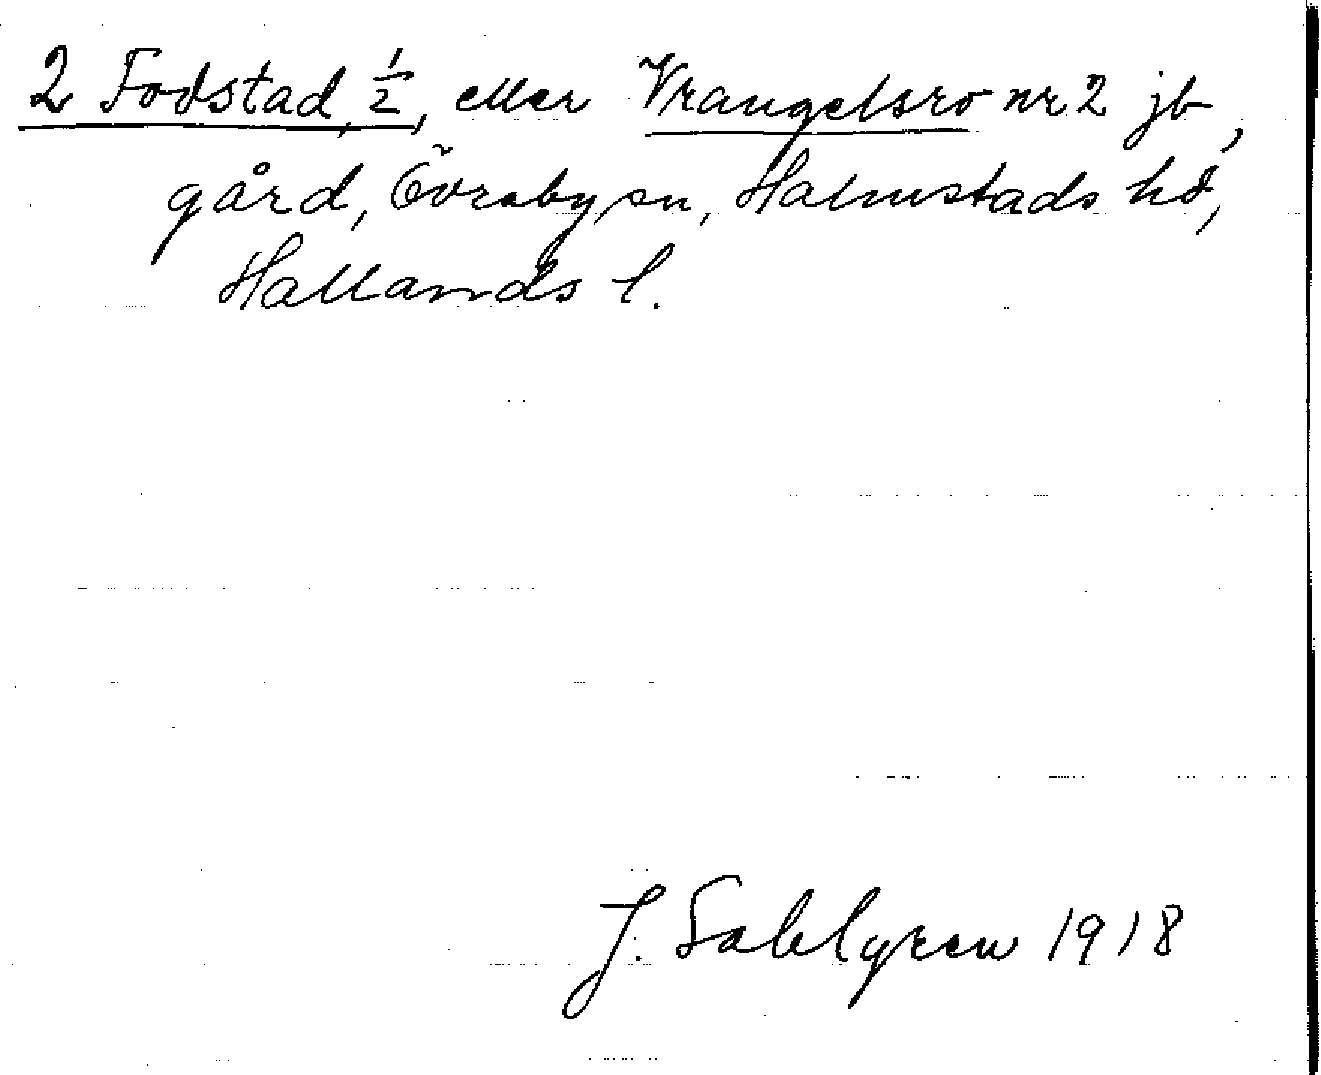 2 Fodstad, ½, eller Vrangelsro nr 2 jb,
gård, Övraby sn, Halmstads hd,
Hallands l.
J. Sahlgren 1918